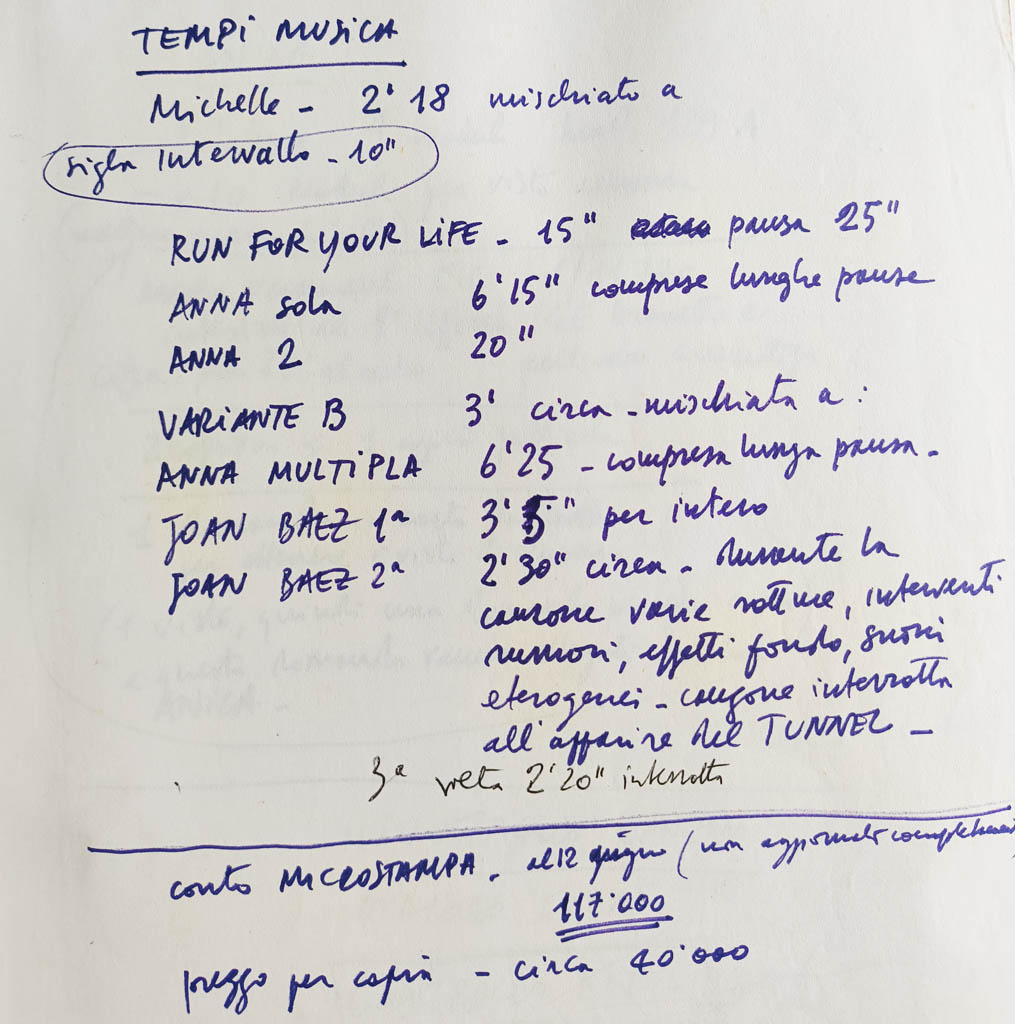 TEMPI MUSICA
Michelle - 2' 18 mischiato a
sigla intervallo - 10"
RUN FOR YOUR LIFE - 15" pausa 25"
ANNA sola 6'15" comprese lunghe pause
ANNA 2 20"
VARIANTE B 3' circa - mischiata a :
ANNA MULTIPLA 6'25 - compresa lunga pausa -
JOAN BAEZ 1ª 3' 5" per intero
JOAN BAEZ 2ª 2'30" circa - durante la
canzone varie rotture, interventi
rumori, effetti fondo, suoni
eterogenei - canzone interrotta
all'apparire del TUNNEL -
3ª volta 2'20" interrotta
conto MICROSTAMPA - al 12 giugno (non aggiornato
117'000
prezzo per copia - circa 40'000